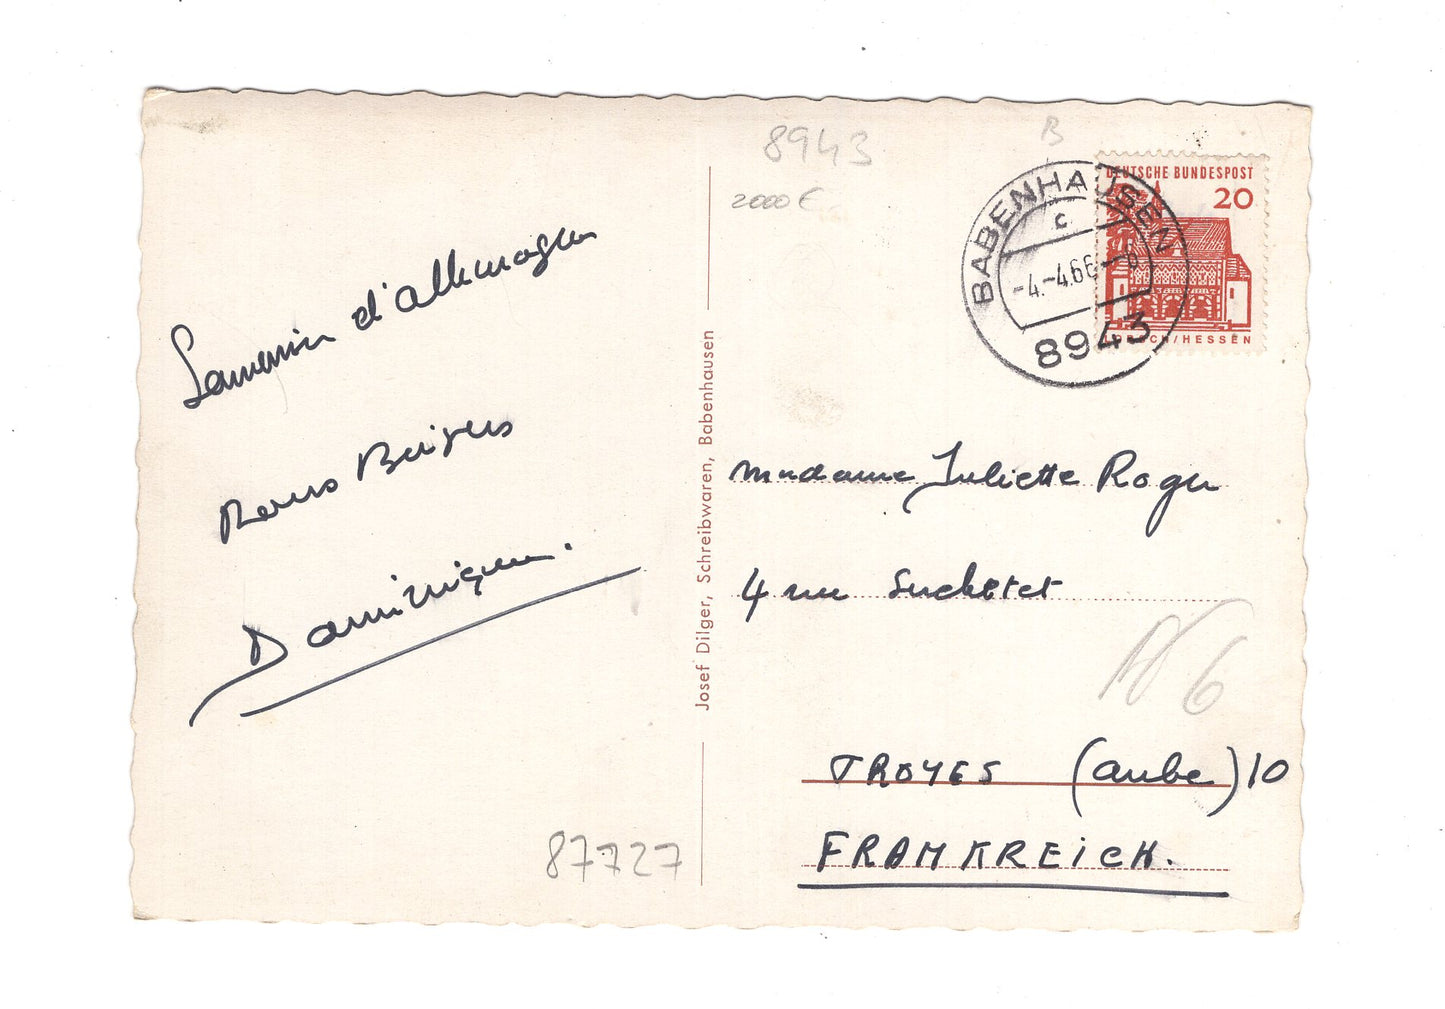 Souvenir d'allemagne
Bons Baisers
Dominique.
Josef Dilger, Schreibwaren, Babenhausen
8943
B
2000 €
BABENHAUSEN
c
-4.-4.66
8943
DEUTSCHE BUNDESPOST
20
LORSCH/HESSEN
Madame Juliette Roger
4 rue Suchetet
6
TROYES (aube) 10
FRANKREICH.
87727